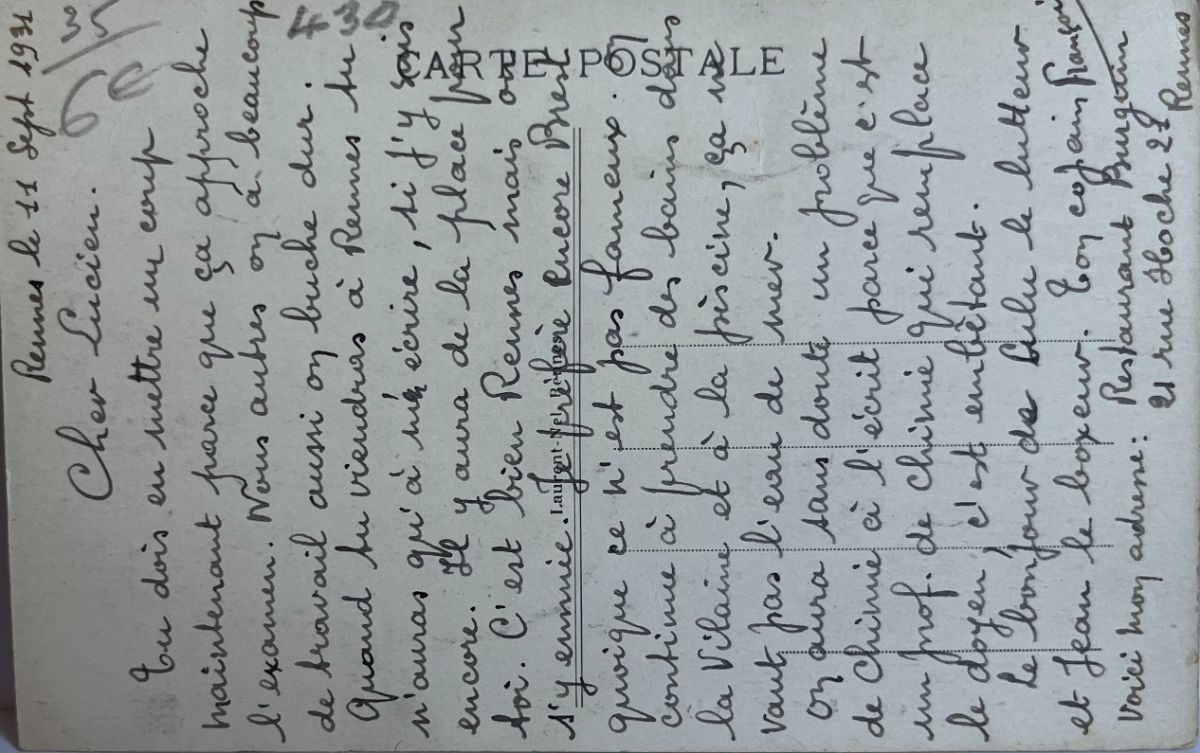 Rennes le 11 Sept 1931
Cher Lucien.
Tu dois en mettre un coup
maintenant parce que ça approche
l'examen. Nous autres on a beaucoup
de travail aussi on buche dur.
Quand tu viendras à Rennes tu
n'auras qu'à m'écrire, si j'y suis
encore. Il y aura de la place pour
toi. C'est bien Rennes mais on
s'y ennuie. Je préfère encore Brest
quoique ce n'est pas fameux. On
continue à prendre des bains dans
la Vilaine et à la piscine, ça ne
vaut pas l'eau de mer.
On aura sans doute un problème
de Chimie à l'écrit parce que c'est
un prof. de chimie qui remplace
le doyen, c'est embêtant.
Le bonjour de Lulu le lutteur
et Jean le boxeur. Ton copain François
Voici mon adresse: Restaurant Burgain
21 rue Hoche 21 Rennes
CARTE POSTALE
Laurent-Nel, Rennes
35
430
6€